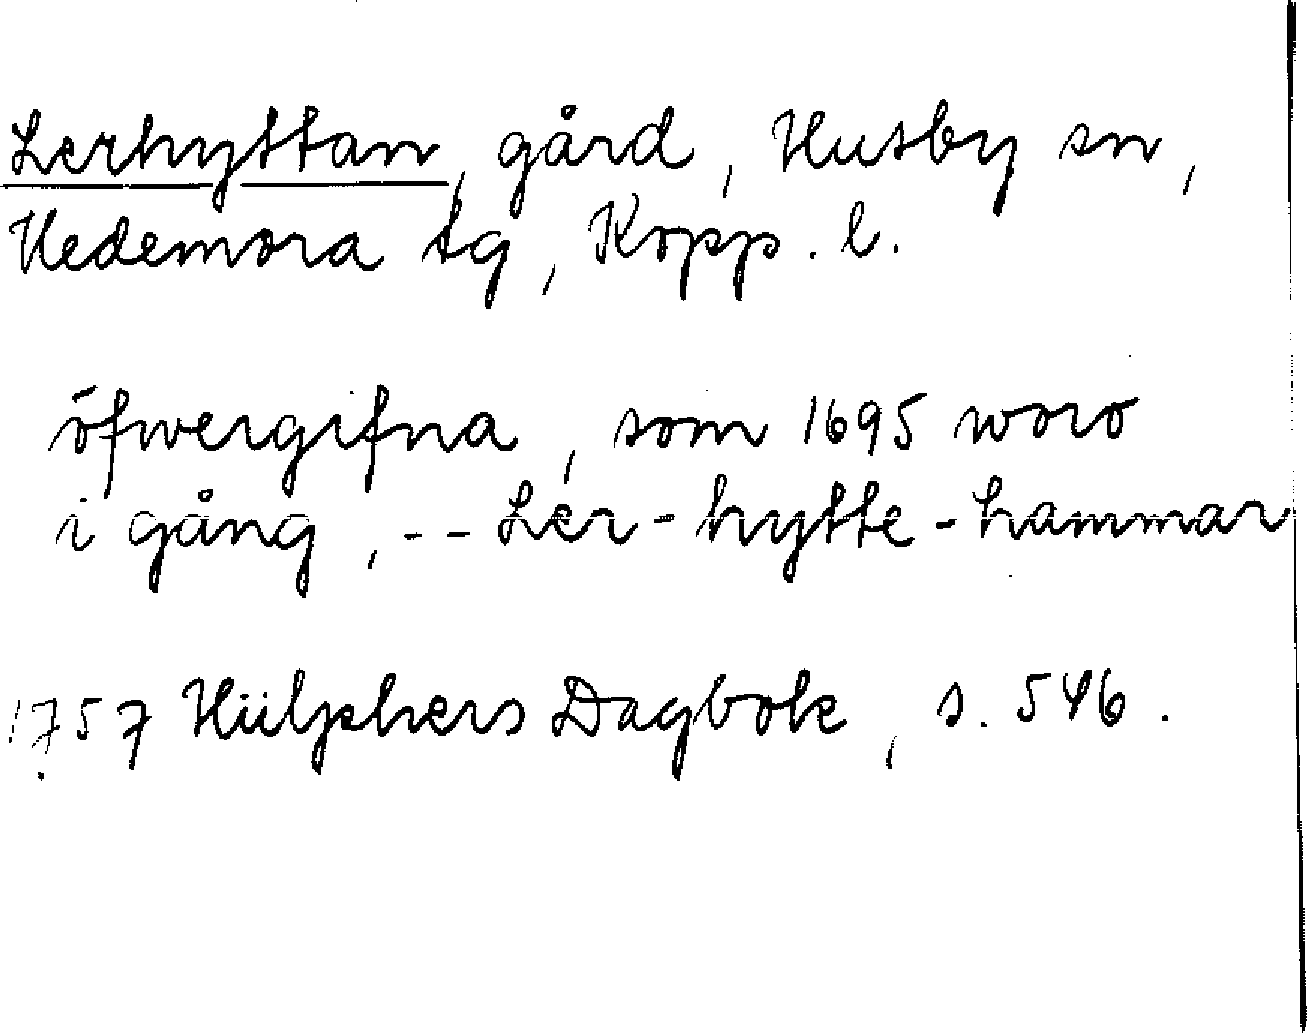 Lerhyttan, gård, Husby sn,
Hedemora tg, Kopp. l.
öfwergifna, som 1695 woro
i gång, -- Ler-hytte-hammar
1757 Hülphers Dagbok, s. 546.